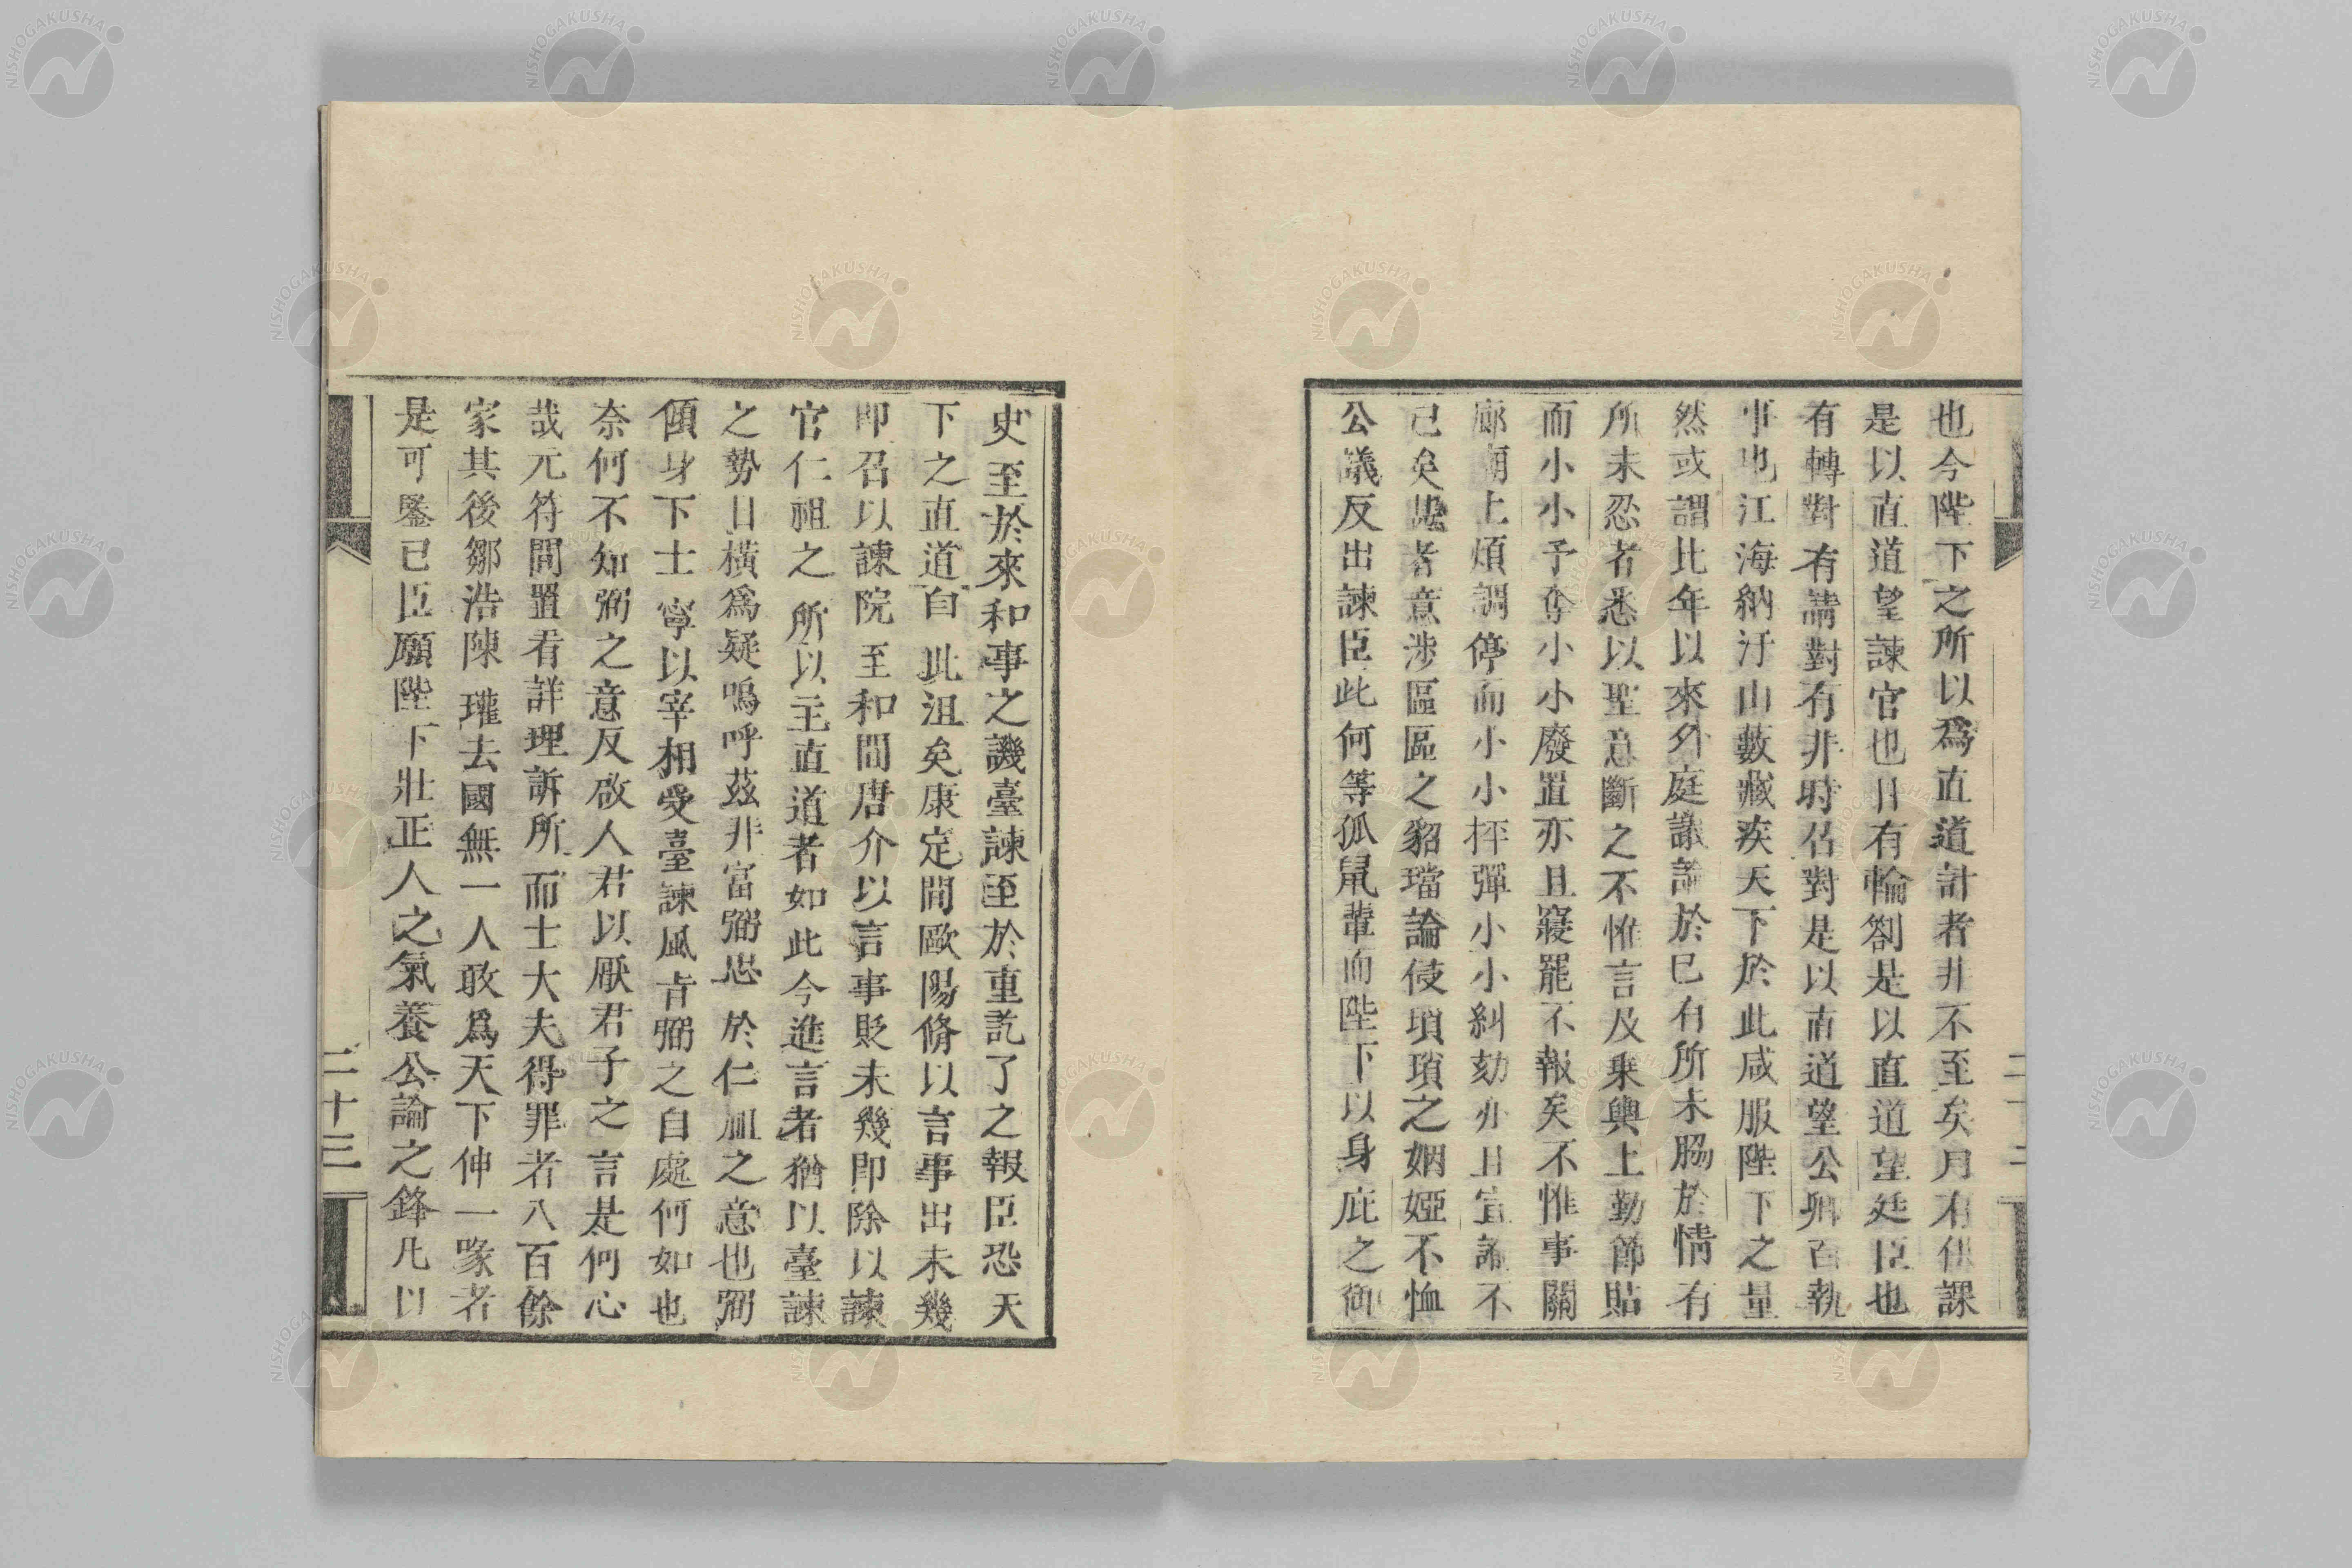 也今陛下之所以爲直道計者非不至矣月有供課
是以直道望諫官也日有輪劄是以直道望廷臣也
有轉對有請對有非時召對是以直道望公卿百執
事也江海納汙山藪藏疾天下於此咸服陛下之量
然或謂比年以來外庭議論於已有所未脇於情有
所未忍者悉以聖意斷之不惟言及乗輿上勤節貼
而小小予奪小小廢置亦且寢罷不報矣不惟事關
廊廟上煩調停而小小抨彈小小糾劾亦且宣諭不
已矣者意涉區區之貂璫論侵瑣瑣之姻婭不恤
公議反出諫臣此何等狐鼠輩而陛下以身庇之御
史至於來和事之譏臺諫至於重訖了之報臣恐天
下之直道自此沮矣康定間歐陽脩以言事出未幾
即召以諫院至和間唐介以言事貶未幾即除以諫
官仁祖之所以主直道者如此今進言者猶以臺諫
之勢日橫爲疑嗚呼茲非富弼忠於仁祖之意也弼
傾身下士寧以宰相受臺諫風旨弼之自處何如也
奈何不知弼之意反啟人君以厭君子之言是何心
哉元符間置看詳理訴所而士大夫得罪者八百餘
家其後鄒浩陳瓘去國無一人敢爲天下伸一喙者
是可鑒已臣願陛下壯正人之氣養公論之鋒凡以
二十三
NISHOGAKUSHA